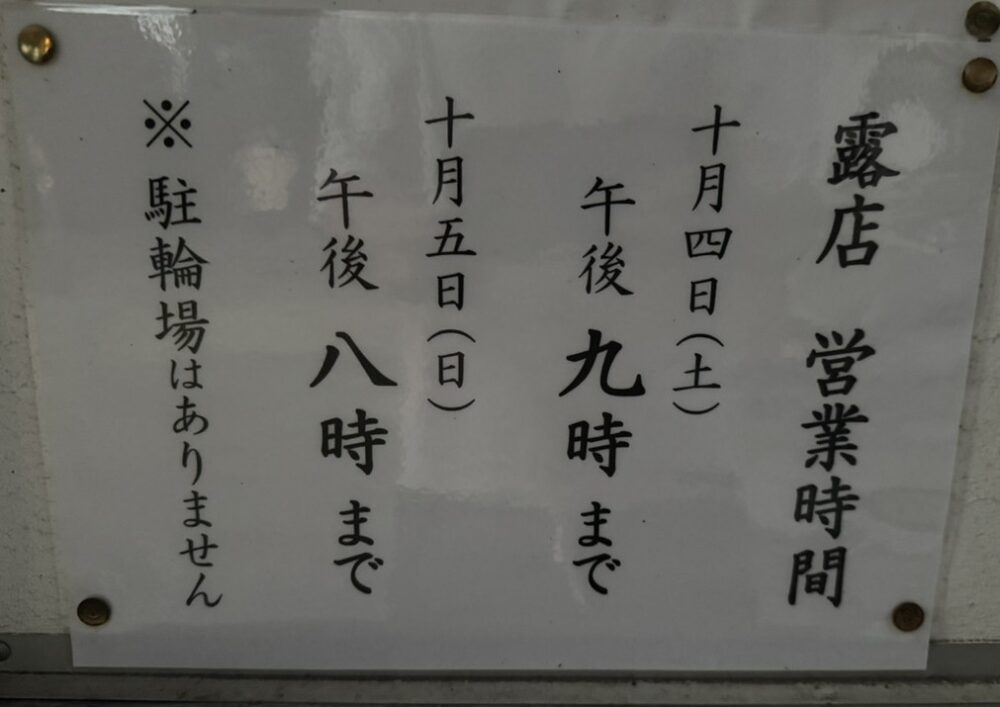 露店 営業時間
十月四日(土)
午後 九時 まで
十月五日(日)
午後 八時 まで
※ 駐輪場はありません